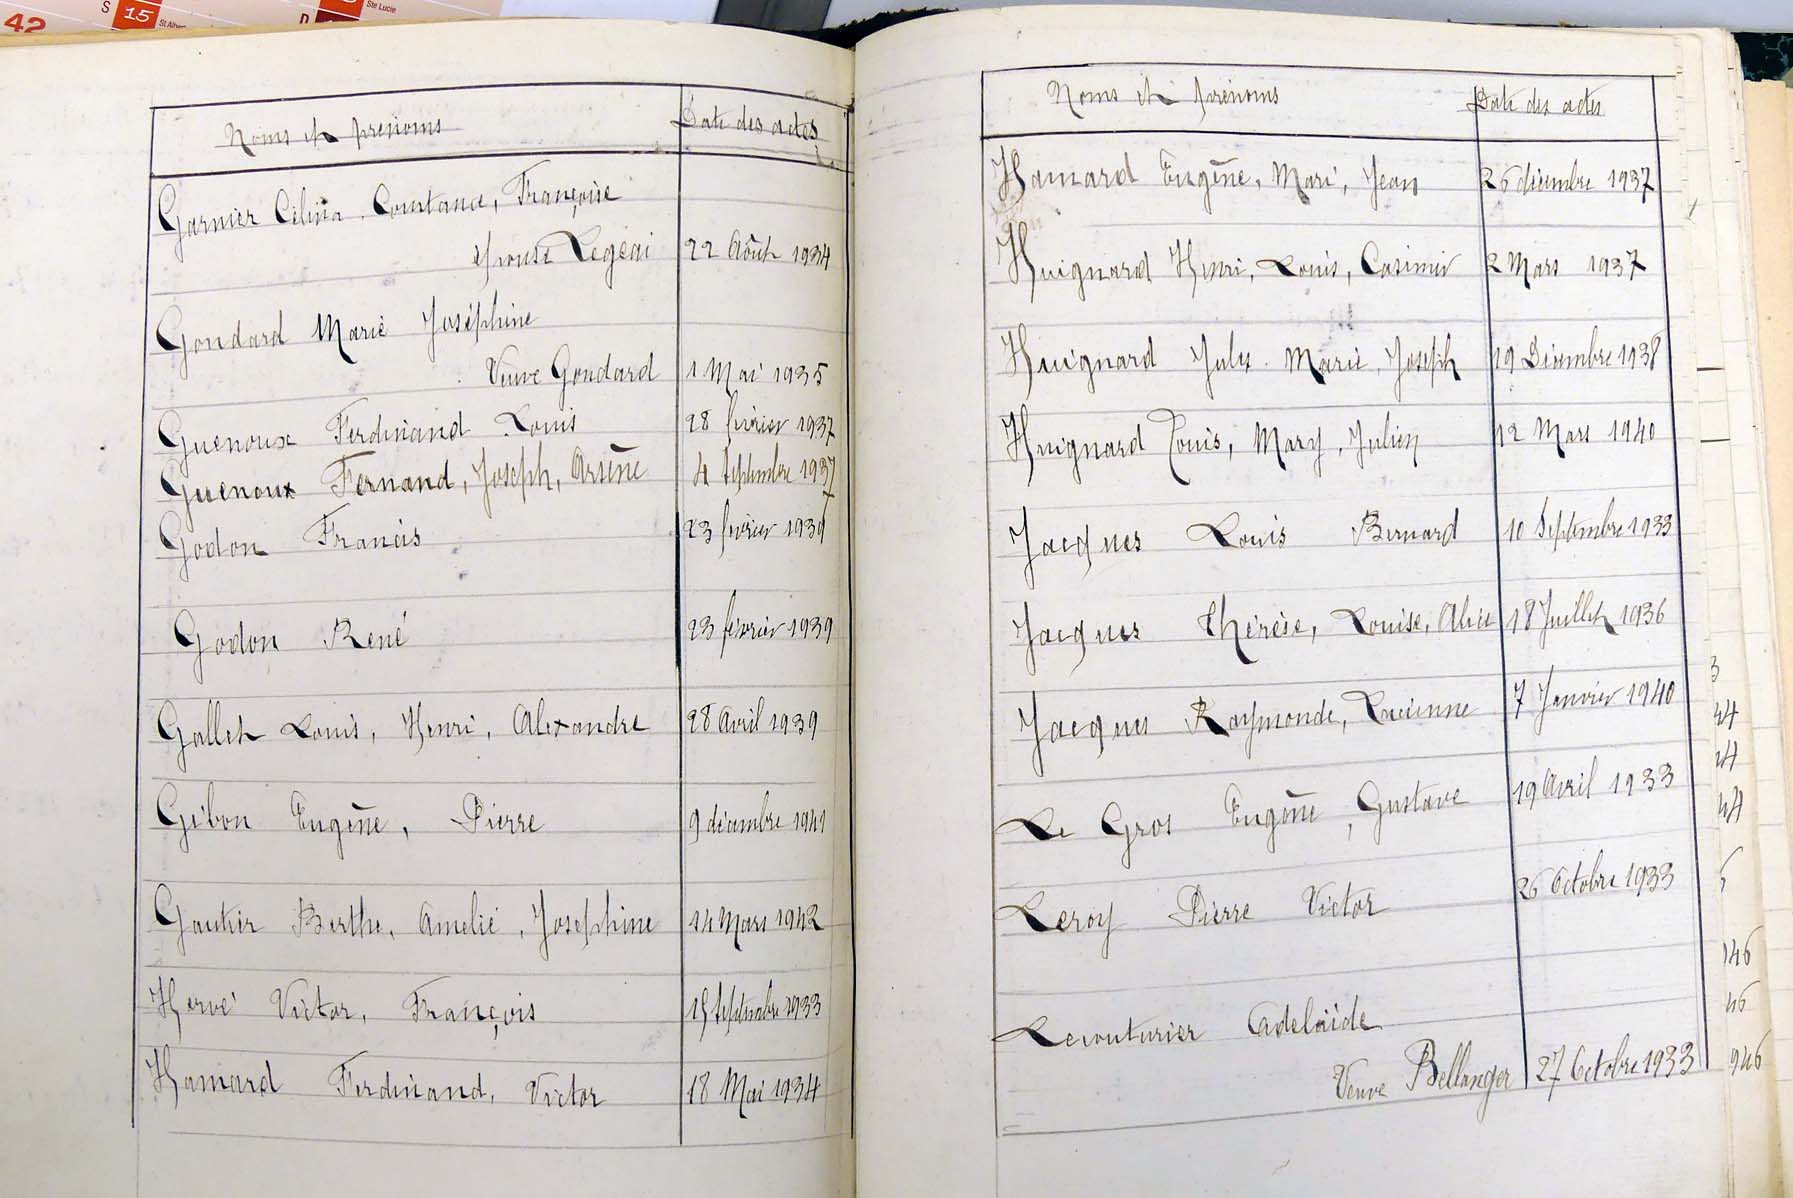 42
S 15 St Albert
D
Ste Lucie
Noms et prénoms Date des actes
Garnier Célina Constance, Françoise
épouse Legeai 22 Août 1934
Gondard Marie Joséphine
Veuve Gondard 1 Mai 1935
Guenoux Ferdinand Louis 28 février 1937
Guenoux Fernand, Joseph, Arsène 4 Septembre 1937
Godon Francis 23 février 1939
Godon René 23 février 1939
Gallet Louis, Henri, Alexandre 28 Avril 1939
Gibon Eugène, Pierre 9 décembre 1941
Gautier Berthe, Amélie, Joséphine 14 Mars 1942
Hervé Victor, François Septembre 1933
Hamard Ferdinand, Victor 18 Mai 1934
Noms et prénoms Date des actes
Hamard Eugène, Marie, Jean 26 décembre 1937
Huignard Henri, Louis, Casimir 2 Mars 1937
Huignard Jules Marie, Joseph 19 Décembre 1938
Huignard Louis, Mary, Julien 12 Mars 1940
Jacques Louis Bernard 10 Septembre 1933
Jacques Thérèse, Louise, Alice 18 Juillet 1936
Jacques Raymonde, Lucienne 7 Janvier 1940
Le Gros Eugène, Gustave 19 Avril 1933
Leroy Pierre Victor 26 Octobre 1933
Lecouturier Adelaïde
Veuve Bellanger 27 Octobre 1933
3
44
44
44
146
46
946